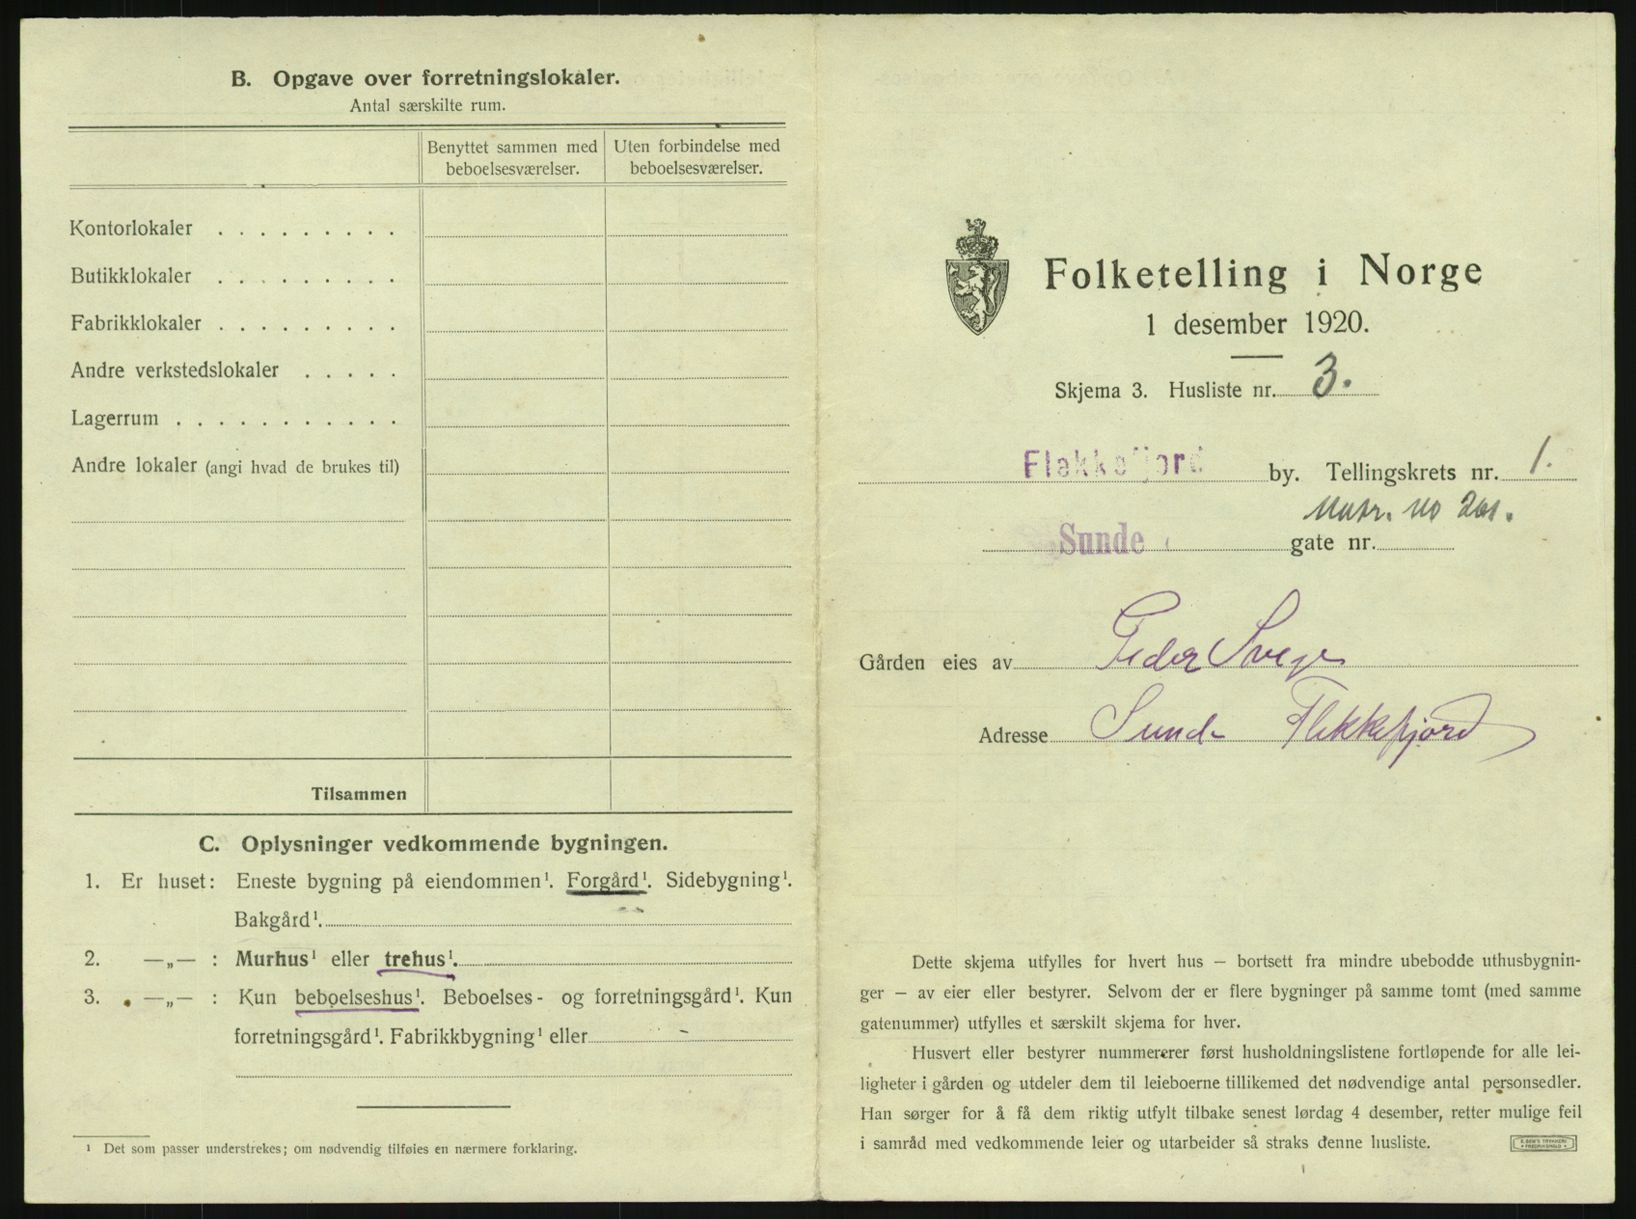 B. Opgave over forretningslokaler.
Antal særskilte rum.
Benyttet sammen med beboelsesværelser.
Uten forbindelse med beboelsesværelser.
Kontorlokaler . . . . . . . . .
Butikklokaler . . . . . . . . .
Fabrikklokaler . . . . . . . . .
Andre verkstedslokaler . . . . .
Lagerrum . . . . . . . . . . .
Andre lokaler (angi hvad de brukes til)
Tilsammen
C. Oplysninger vedkommende bygningen.
1. Er huset: Eneste bygning på eiendommen¹. Forgård¹. Sidebygning¹.
Bakgård¹.
2. —„— : Murhus¹ eller trehus¹.
3. —„— : Kun beboelseshus¹. Beboelses- og forretningsgård¹. Kun
forretningsgård¹. Fabrikkbygning¹ eller
¹ Det som passer understrekes; om nødvendig tilføies en nærmere forklaring.
Folketelling i Norge
1 desember 1920.
Skjema 3. Husliste nr. 3.
Flekkefjord by. Tellingskrets nr. 1.
Matr. no 201.
Sunde gate nr.
Gården eies av Peder
Adresse Sunde Flekkefjord
Dette skjema utfylles for hvert hus – bortsett fra mindre ubebodde uthusbygnin-
ger – av eier eller bestyrer. Selvom der er flere bygninger på samme tomt (med samme
gatenummer) utfylles et særskilt skjema for hver.
Husvert eller bestyrer nummererer først husholdningslistene fortløpende for alle lei-
ligheter i gården og utdeler dem til leieboerne tillikemed det nødvendige antal personsedler.
Han sørger for å få dem riktig utfylt tilbake senest lørdag 4 desember, retter mulige feil
i samråd med vedkommende leier og utarbeider så straks denne husliste.